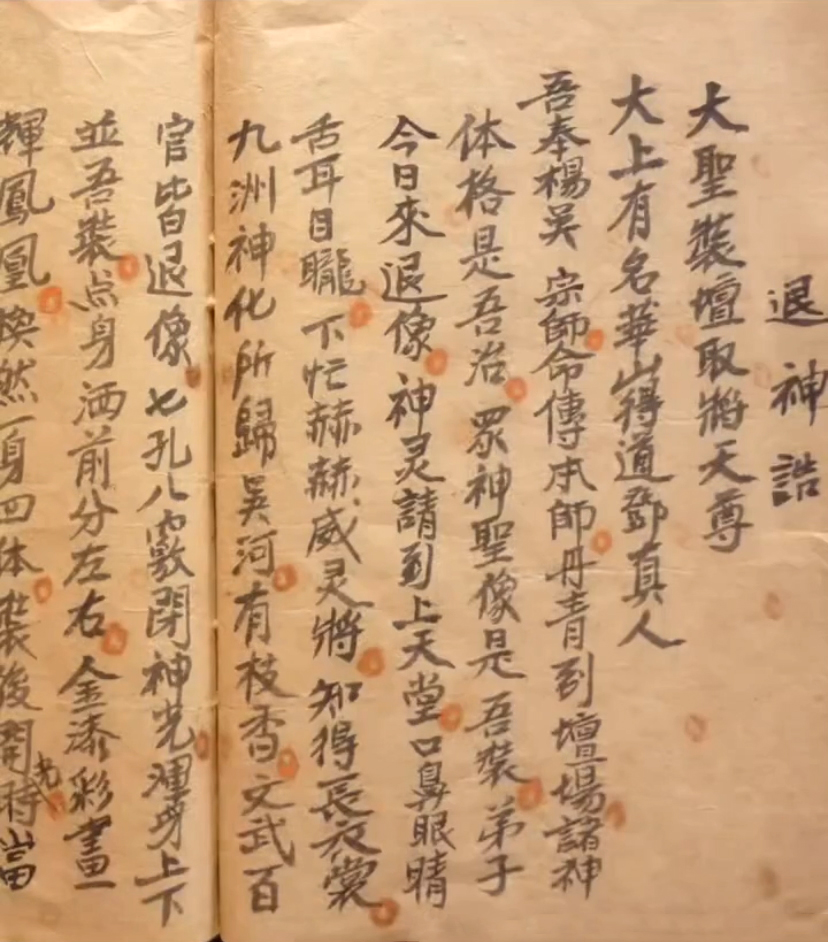 退神誥
大聖裝壇取將天尊
大上有名華山得道鄧真人
吾奉楊吳宗師命傳本師丹青到壇場諸神
体格是吾治眾神聖像是吾裝弟子
今日來退像神灵請到上天堂口鼻眼睛
舌耳目矓下忙赫赫威灵將知得長衣裳
九洲神化所歸吳河有枝香文武百
官皆退像七孔八竅閉神光渾身上下
並吾裝点身洒前分左右金漆彩畫
輝鳳凰煥然一身四体裝後開光時當